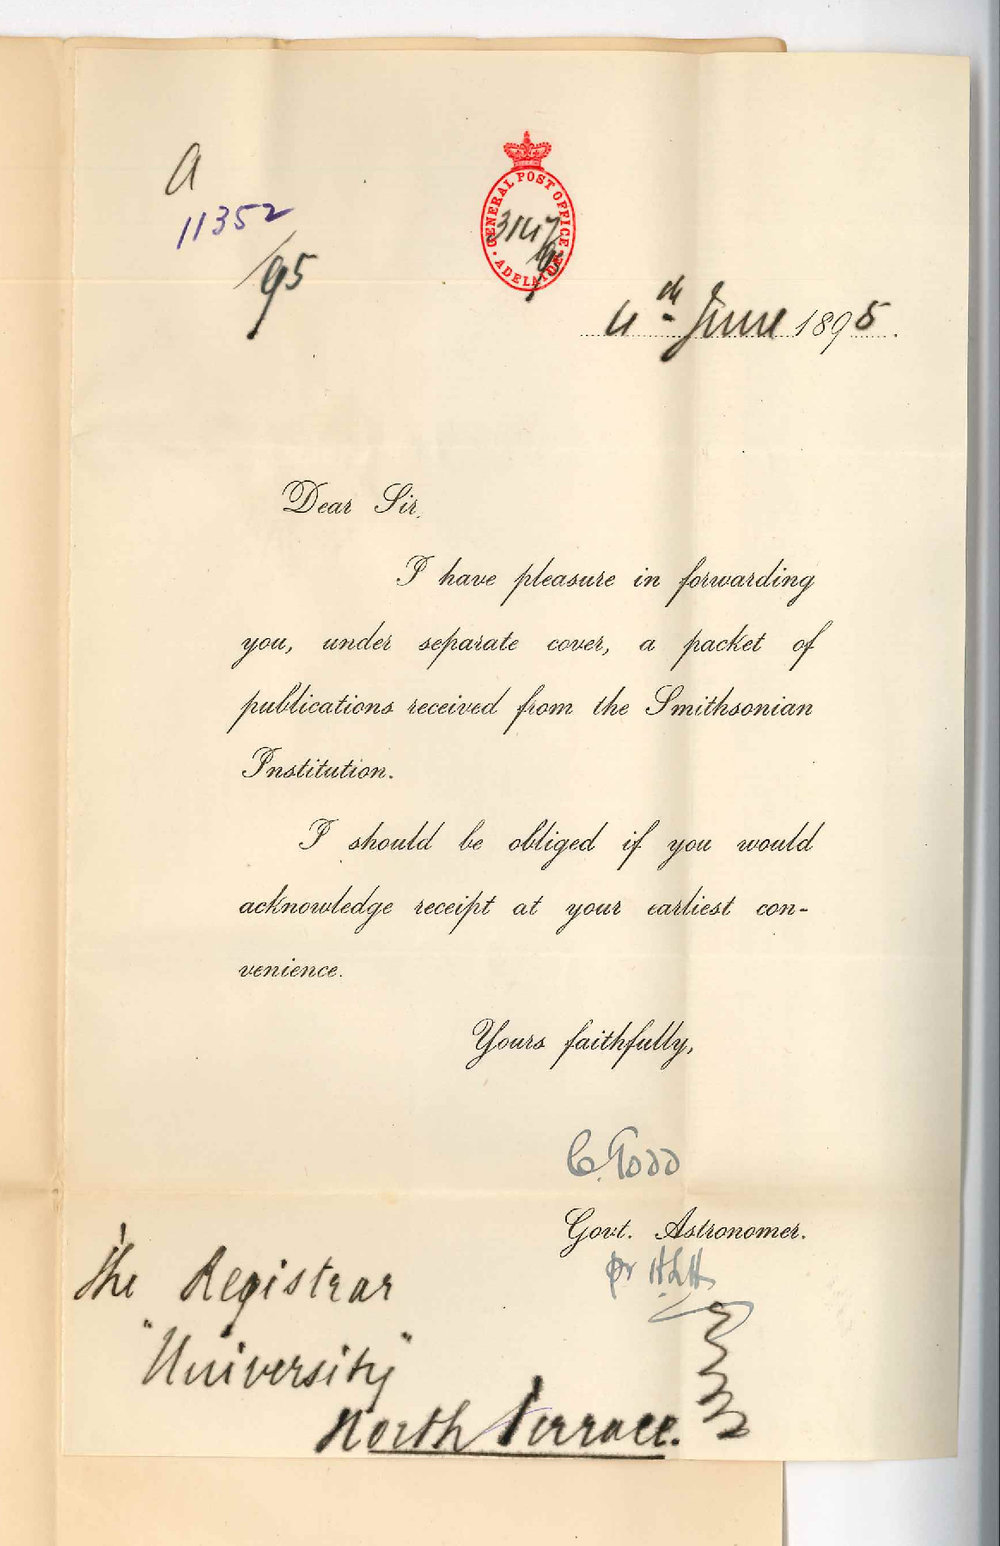 a
11352
/95
GENERAL POST OFFICE
ADELAIDE
4th June 1895.
Dear Sir,
I have pleasure in forwarding
you, under separate cover, a packet of
publications received from the Smithsonian
Institution.
I should be obliged if you would
acknowledge receipt at your earliest con-
venience.
Yours faithfully,
C. Todd
Govt. Astronomer.
The Registrar
"University"
North Terrace.